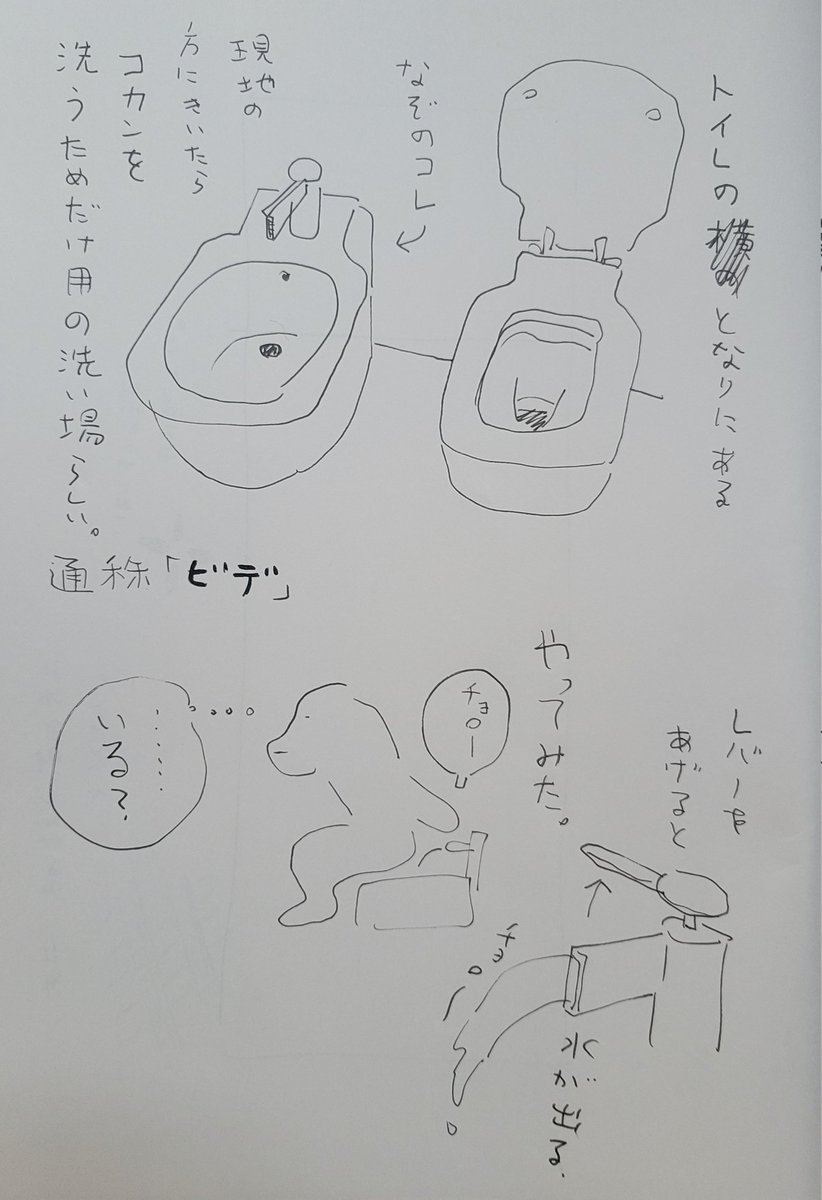 トイレの横のとなりにある
なぞのコレ
現地の
方にきいたら
コカンを
洗うためだけ用の洗い場らしい。
通称「ビデ」
やってみた。
チョローー
......
いる?
レバーを
あげると
チョロ
水が出る.